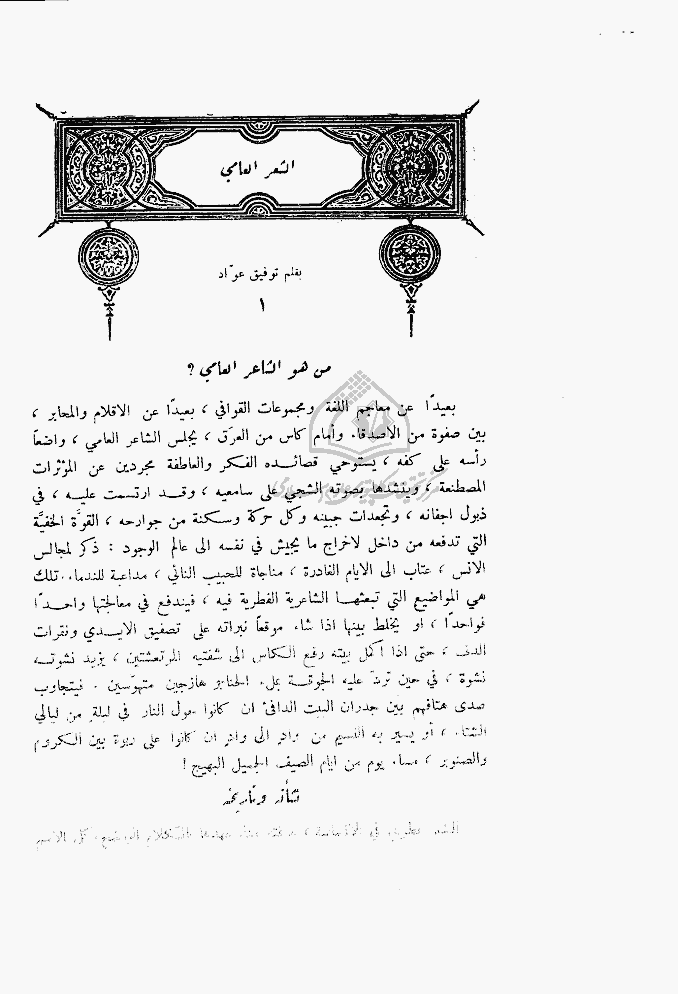 الشعر العامي
بقلم توفيق عوّاد
١
من هو الشاعر العامي ؟
بعيدًا عن معاجم اللغة ومجموعات القوافي ، بعيدًا عن الاقلام والمحابر ،
بين صفوة من الاصدقاء وأمام كاس من العرَق ، يجلس الشاعر العامي ، واضعاً
رأسه على كفه ، يستوحي قصائده الفكر والعاطفة مجردين عن المؤثرات
المصطنعة ، وينشدها بصوته الشجي على سامعيه ، وقد ارتسمت عليه ، في
ذبول اجفانه ، وتجعدات جبينه وكل حركة وسكنة من جوارحه ، القوَّة الخفيَّة
التي تدفعه من داخل لاخراج ما يجيش في نفسه الى عالم الوجود : ذكر لمجالس
الانس ، عتاب الى الايام الغادرة ، مناجاة للحبيب النائي ، مداعبة للندماء. تلك
هي المواضيع التي تبعثها الشاعرية الفطرية فيه ، فيندفع في معالجتها واحدًا
فواحدًا ، او يخلط بينها اذا شاء موقعاً نبراته على تصفيق الايدي ونقرات
الدف ، حتى اذا اكمل بيته رفع الكاس الى شفتيه المرتعشتين ، يزيد نشوته
نشوة ، في حين تردّ عليه الجوقة بملء الحناجر هازجين متهوّسين . فيتجاوب
صدى هتافهم بين جدران البيت الدافئ ان كانوا حول النار في ليلة من ليالي
الشتاء ، أو يسير به النسيم من وادٍ الى وادٍ ان كانوا على ربوة بين الكروم
والصنوبر ، مساء يوم من ايام الصيف الجميل البهيج !
نشأته وتاريخه
في